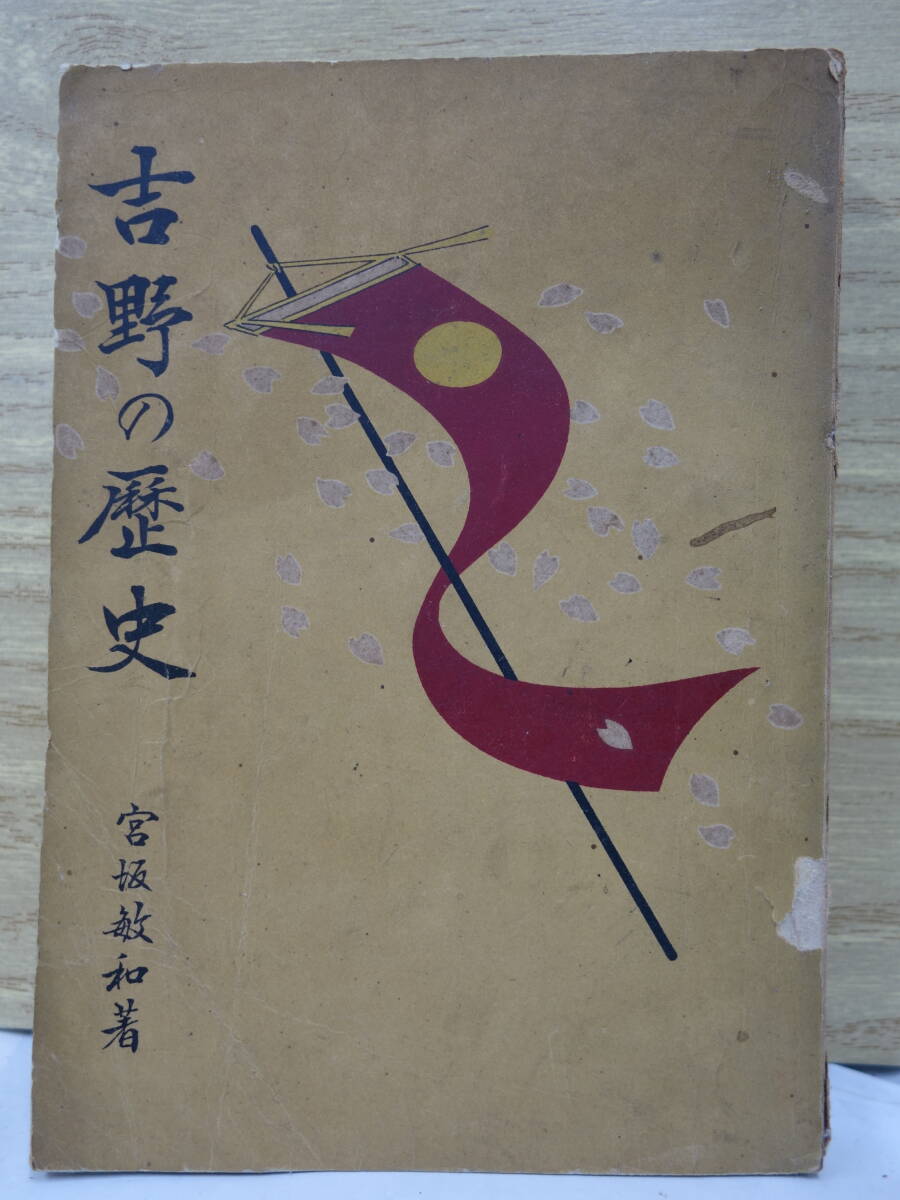 吉野の歴史
宮坂敏和著